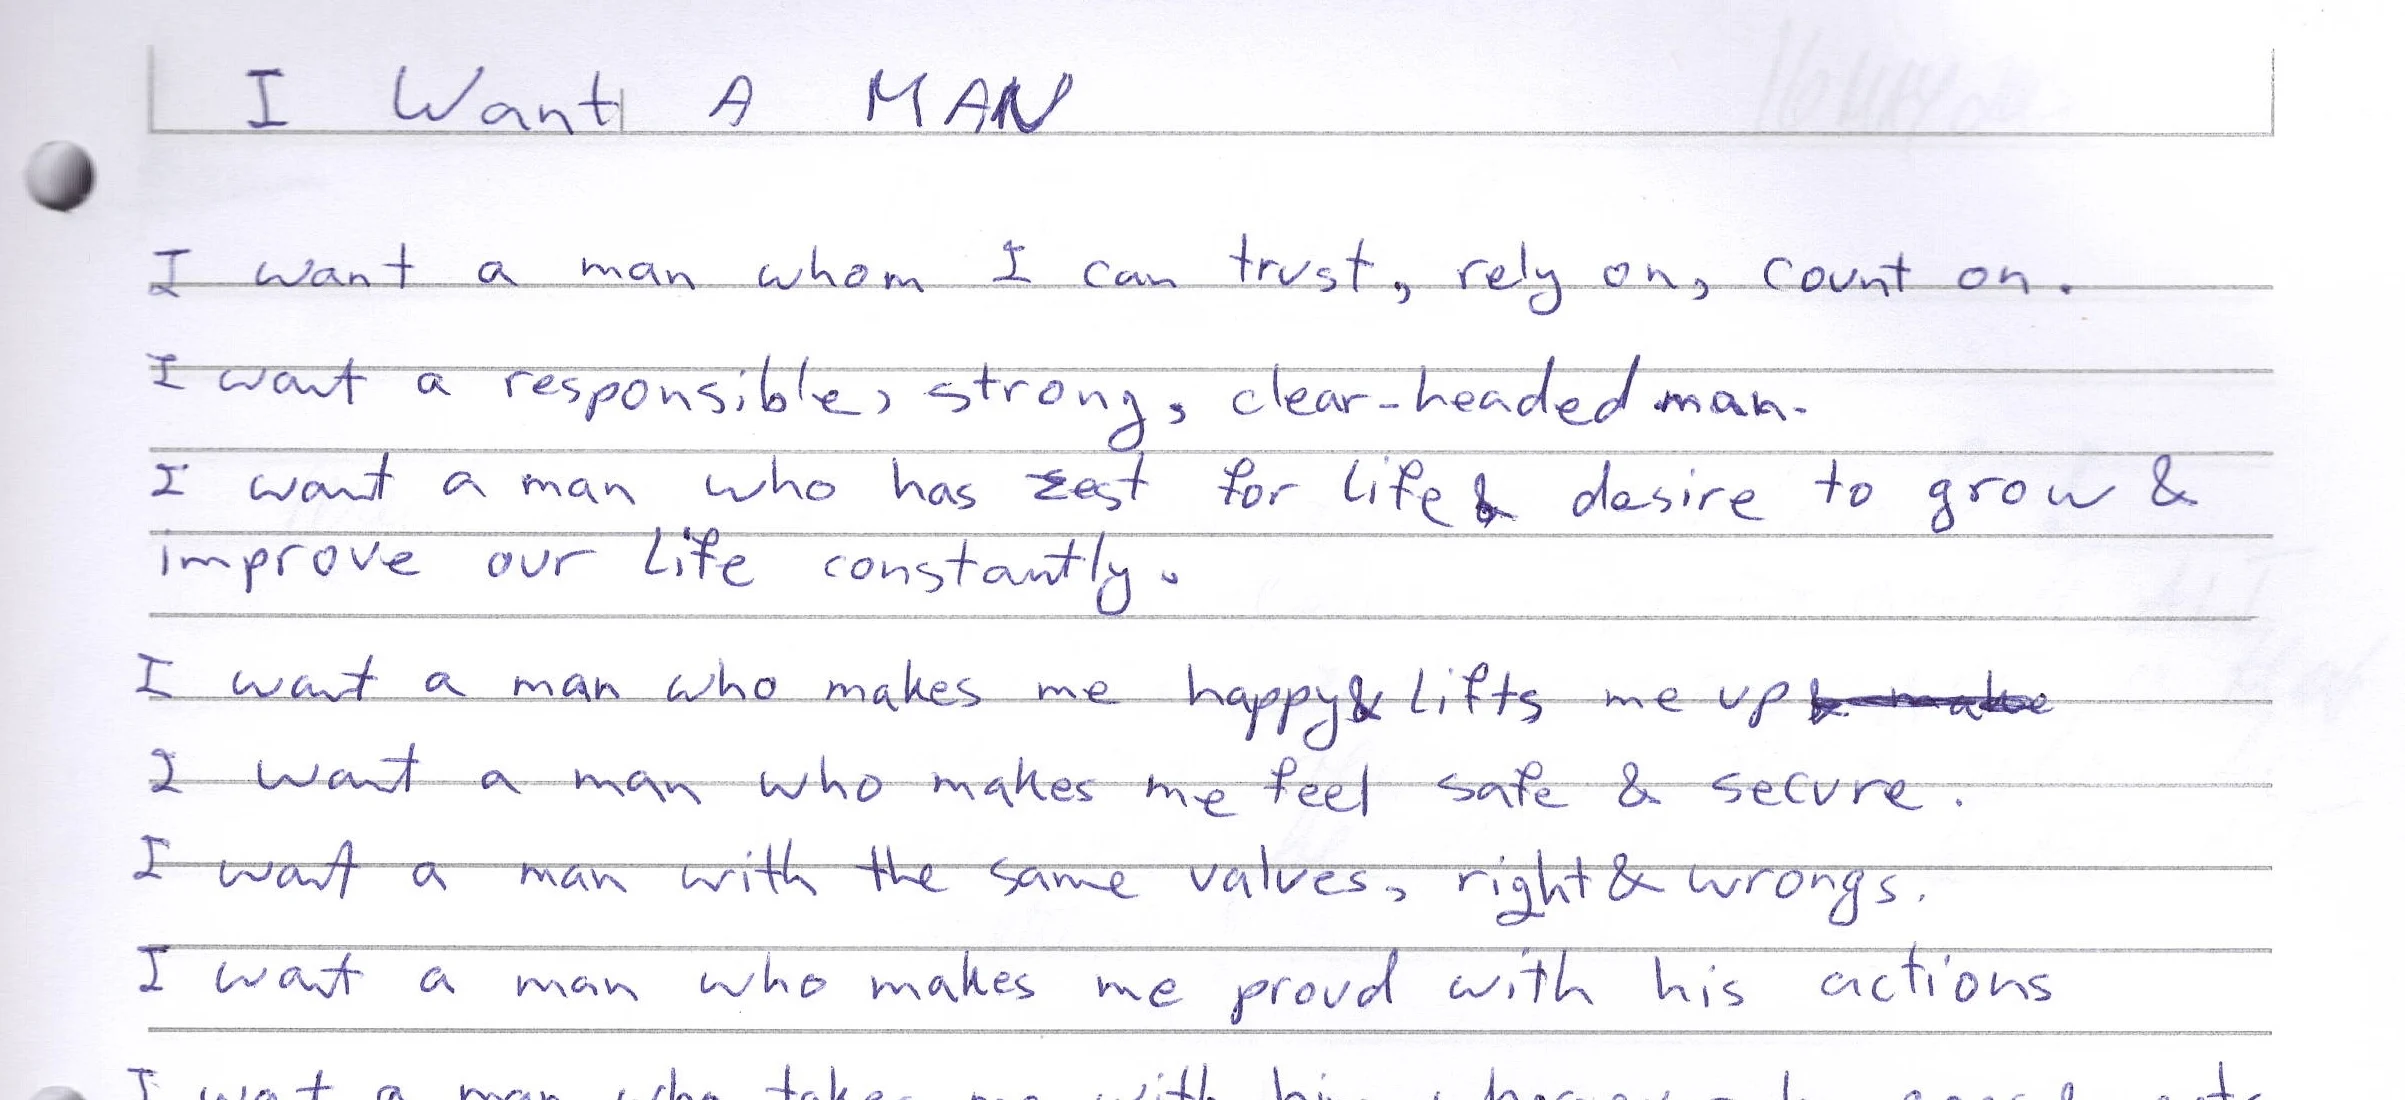 I Want A MAN
I want a man whom I can trust, rely on, count on.
I want a responsible, strong, clear-headed man.
I want a man who has zest for life & desire to grow &
improve our life constantly.
I want a man who makes me happy & lifts me up
I want a man who makes me feel safe & secure.
I want a man with the same values, right & wrongs.
I want a man who makes me proud with his actions
I want a man who takes me with him